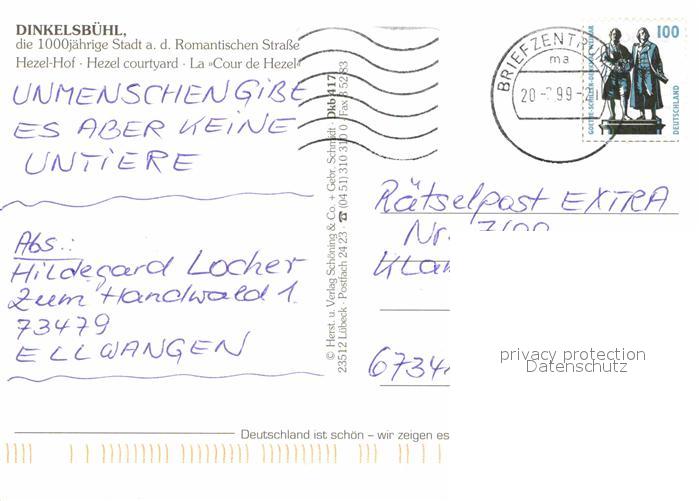 DINKELSBÜHL,
die 1000jährige Stadt a. d. Romantischen Straße
Hezel-Hof · Hezel courtyard · La »Cour de Hezel«
UNMENSCHEN GIBT
ES ABER KEINE
UNTIERE
Abs.:
Hildegard Locher
Zum Handwald 1
73479
ELLWANGEN
© Herst. u. Verlag Schöning & Co. + Gebr. Schmidt · Dkb 417
23512 Lübeck · Postfach 24 23 · ☎ (04 51) 310 310 0 Fax 3 52 83
BRIEFZENTR
ma
20 - .99-2
100
GOETHE-SCHILLER-DENKMAL WEIMAR
DEUTSCHLAND
Rätselpost EXTRA
Nr. 7/99
6734
privacy protection
Datenschutz
Deutschland ist schön – wir zeigen es